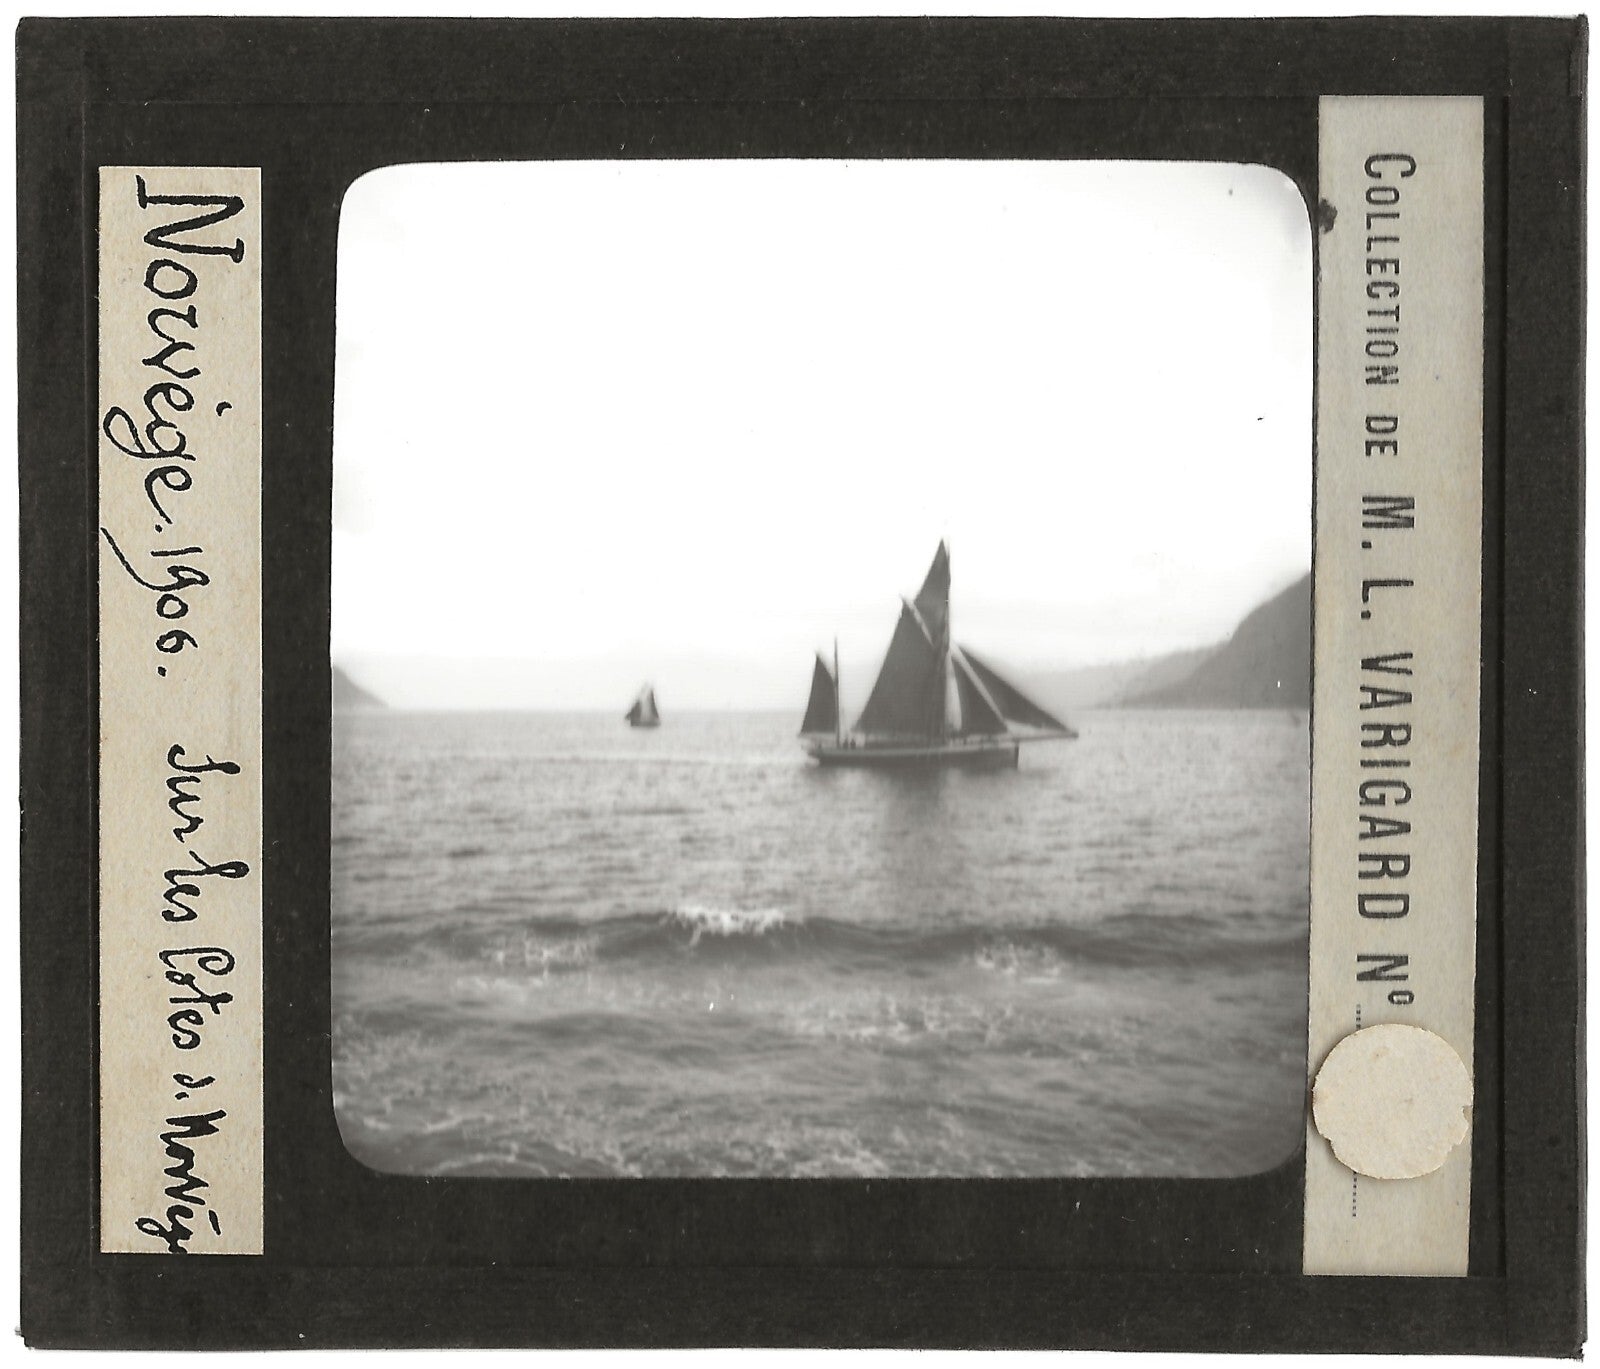 Norvège. 1906. Sur les Cotes d. Norvèg
COLLECTION DE M. L. VARIGARD Nº